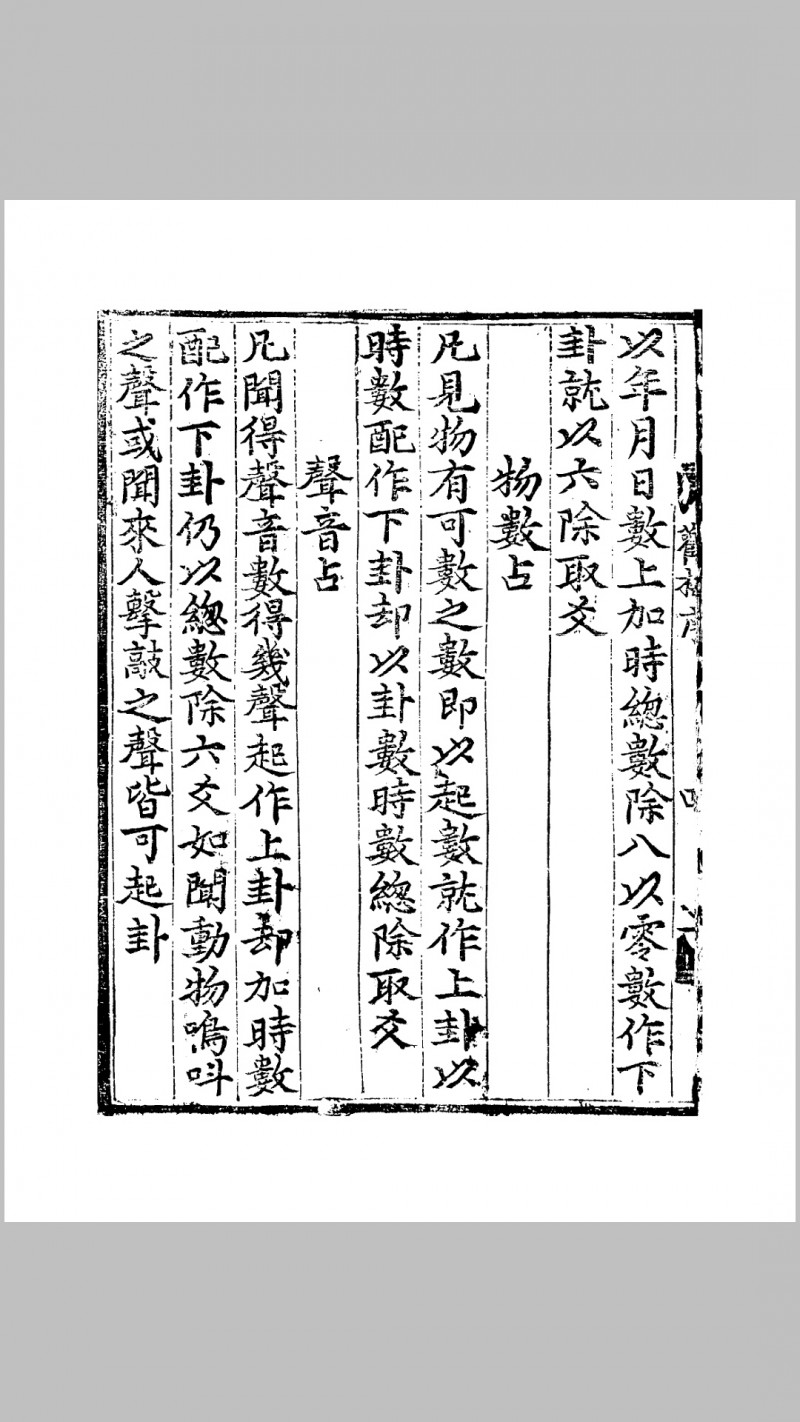 以年月日數上加時總數除八以零數作下
卦就以六除取爻
物數占
凡見物有可數之數即以起數就作上卦以
時數配作下卦却以卦數時數總除取爻
聲音占
凡聞得聲音數得幾聲起作上卦却加時數
配作下卦仍以總數除六爻如聞動物鳴叫
之聲或聞來人擊敲之聲皆可起卦